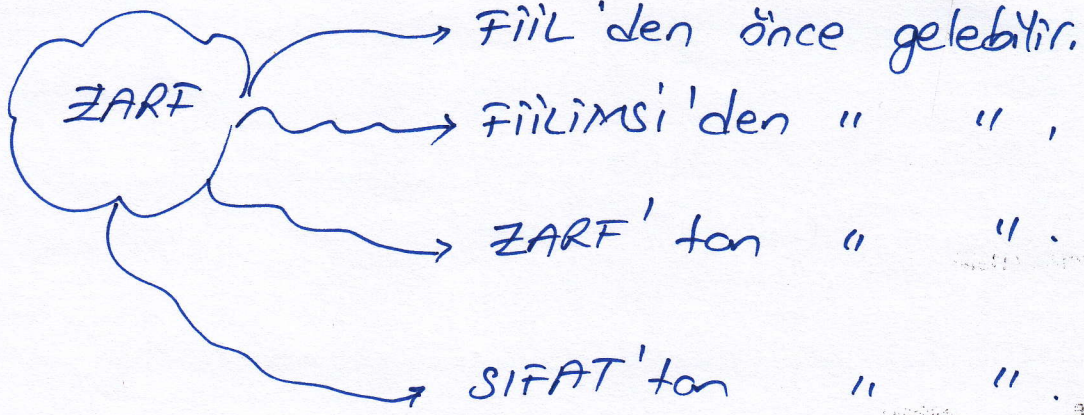 ZARF
FİİL'den önce gelebilir.
FİİLİMSİ'den " " ,
ZARF'tan " " .
SIFAT'tan " " .